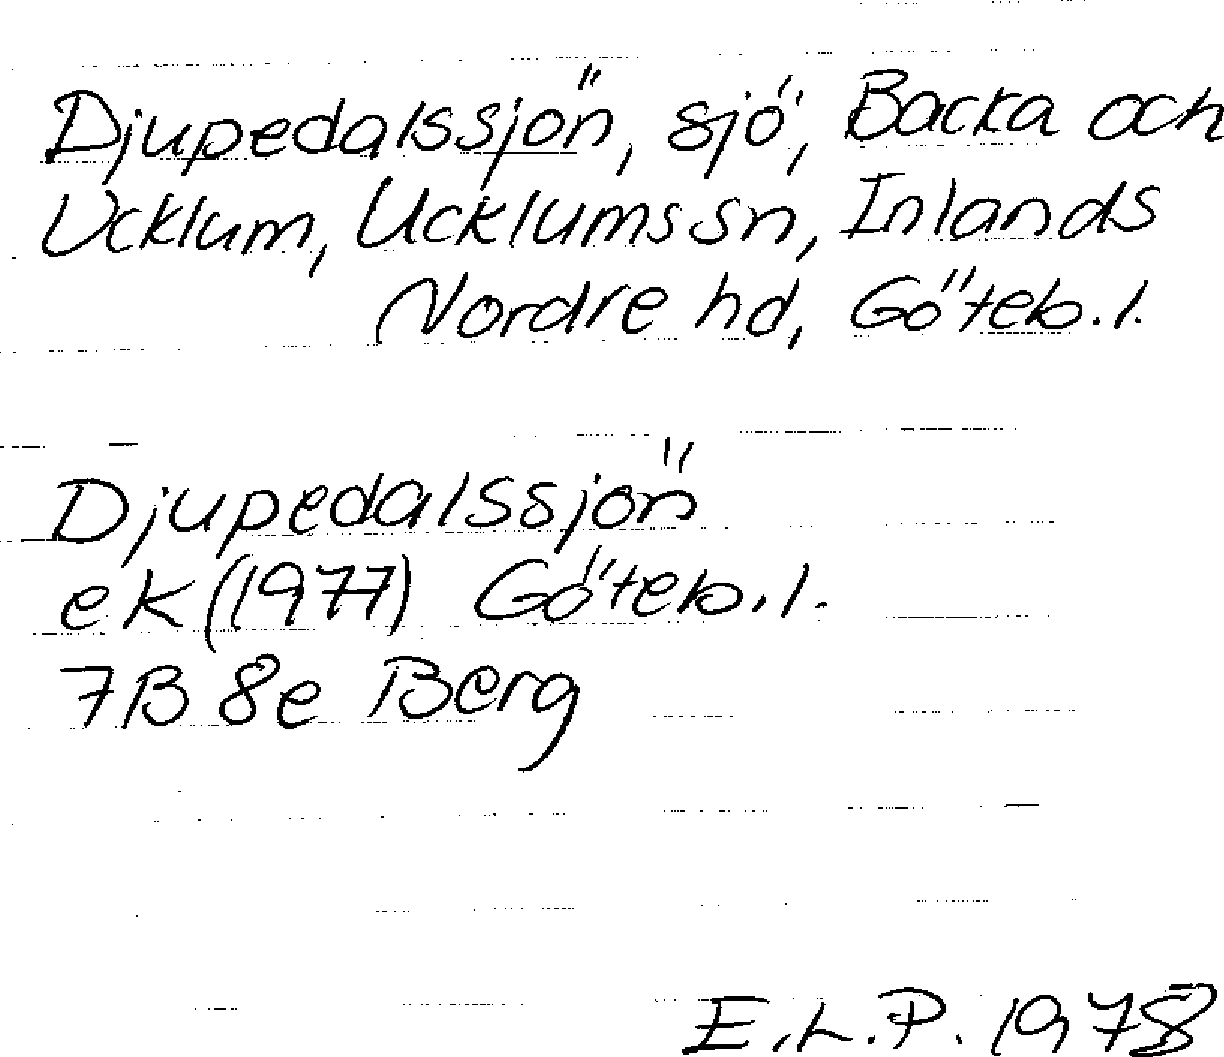 Djupedalssjön, sjö, Backa och
Ucklum, Ucklums sn, Inlands
Nordre hd, Göteb. l.
Djupedalssjön
ek (1977) Göteb. l.
7B 8e Berg
E.L.P. 1978